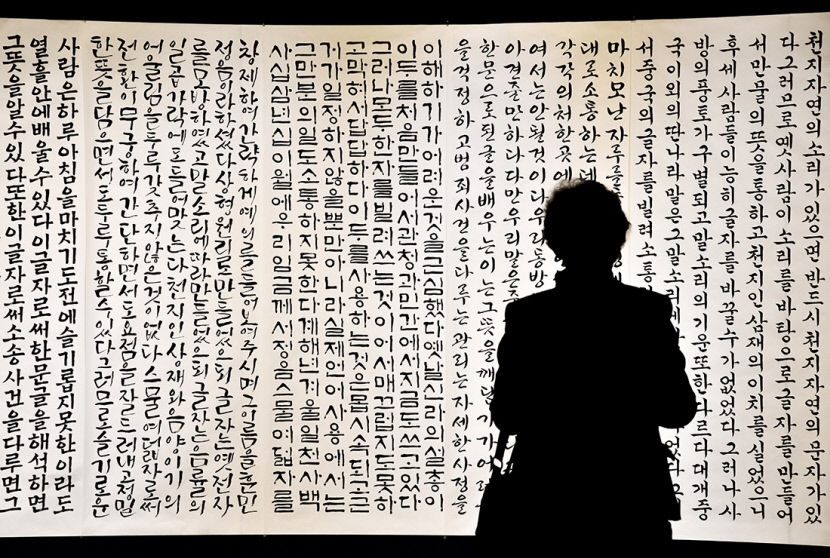 천지자연의 소리가 있으면 반드시 천지자연의 문자가 있
다 그러므로 옛사람이 소리를 바탕으로 글자를 만들어
서 만물의 뜻을 통하고 천지인 삼재의 이치를 실었으니
후세 사람들이 능히 글자를 바꿀 수가 없었다 그러나 사
방의 풍토가 구별되고 말소리의 기운 또한 다르다 대개 중
국 이외의 딴 나라 말은 그 말소리에
서 중국의 글자를 빌려 소통
마치 모난 자루를
대로 소통하는 데
각각의 처한 곳에
여서는 안 될 것이다 우리 동방
아 견줄 만하나 다만 우리말은
한문으로 된 글을 배우는 이는 그 뜻을 깨닫기가 어려
을 걱정하고 범죄사건을 다루는 관리는 자세한 사정을
이해하기가 어려운 것을 근심했다 옛날 신라의 설총이
이두를 처음 만들어서 관청과 민간에서 지금도 쓰고 있다
그러나 모두 한자를 빌려 쓰는 것이어서 매끄럽지도 못하
고 막혀서 답답하다 이두를 사용하는 것은 몹시 속되고 근
거가 일정하지 않을 뿐만 아니라 실제 언어 사용에서는
그 만분의 일도 소통하지 못한다 계해년 겨울 일천사백
사십삼년 십이월에 우리 임금께서 정음 스물여덟 자를
창제하여 간략하게 예의를 들어 보여주시며 그 이름을 훈민
정음이라 하셨다 상형원리로 만들었으되 글자는 옛 전자
를 모방하였고 말소리에 따라 만들었으되 글자는 음률의
일곱 가락에도 들어맞는다 천지인 삼재와 음양 이기의
어울림을 두루 갖추지 않은 것이 없다 스물여덟 자로써
전환이 무궁하여 간단하면서도 요점을 잘 드러내고 정밀
한 뜻을 담으면서도 두루 통할 수 있다 그러므로 슬기로운
사람은 하루아침을 마치기도 전에 슬기롭지 못한 이라도
열흘 안에 배울 수 있다 이 글자로써 한문글을 해석하면
그 뜻을 알 수 있다 또한 이 글자로써 소송사건을 다루면 그